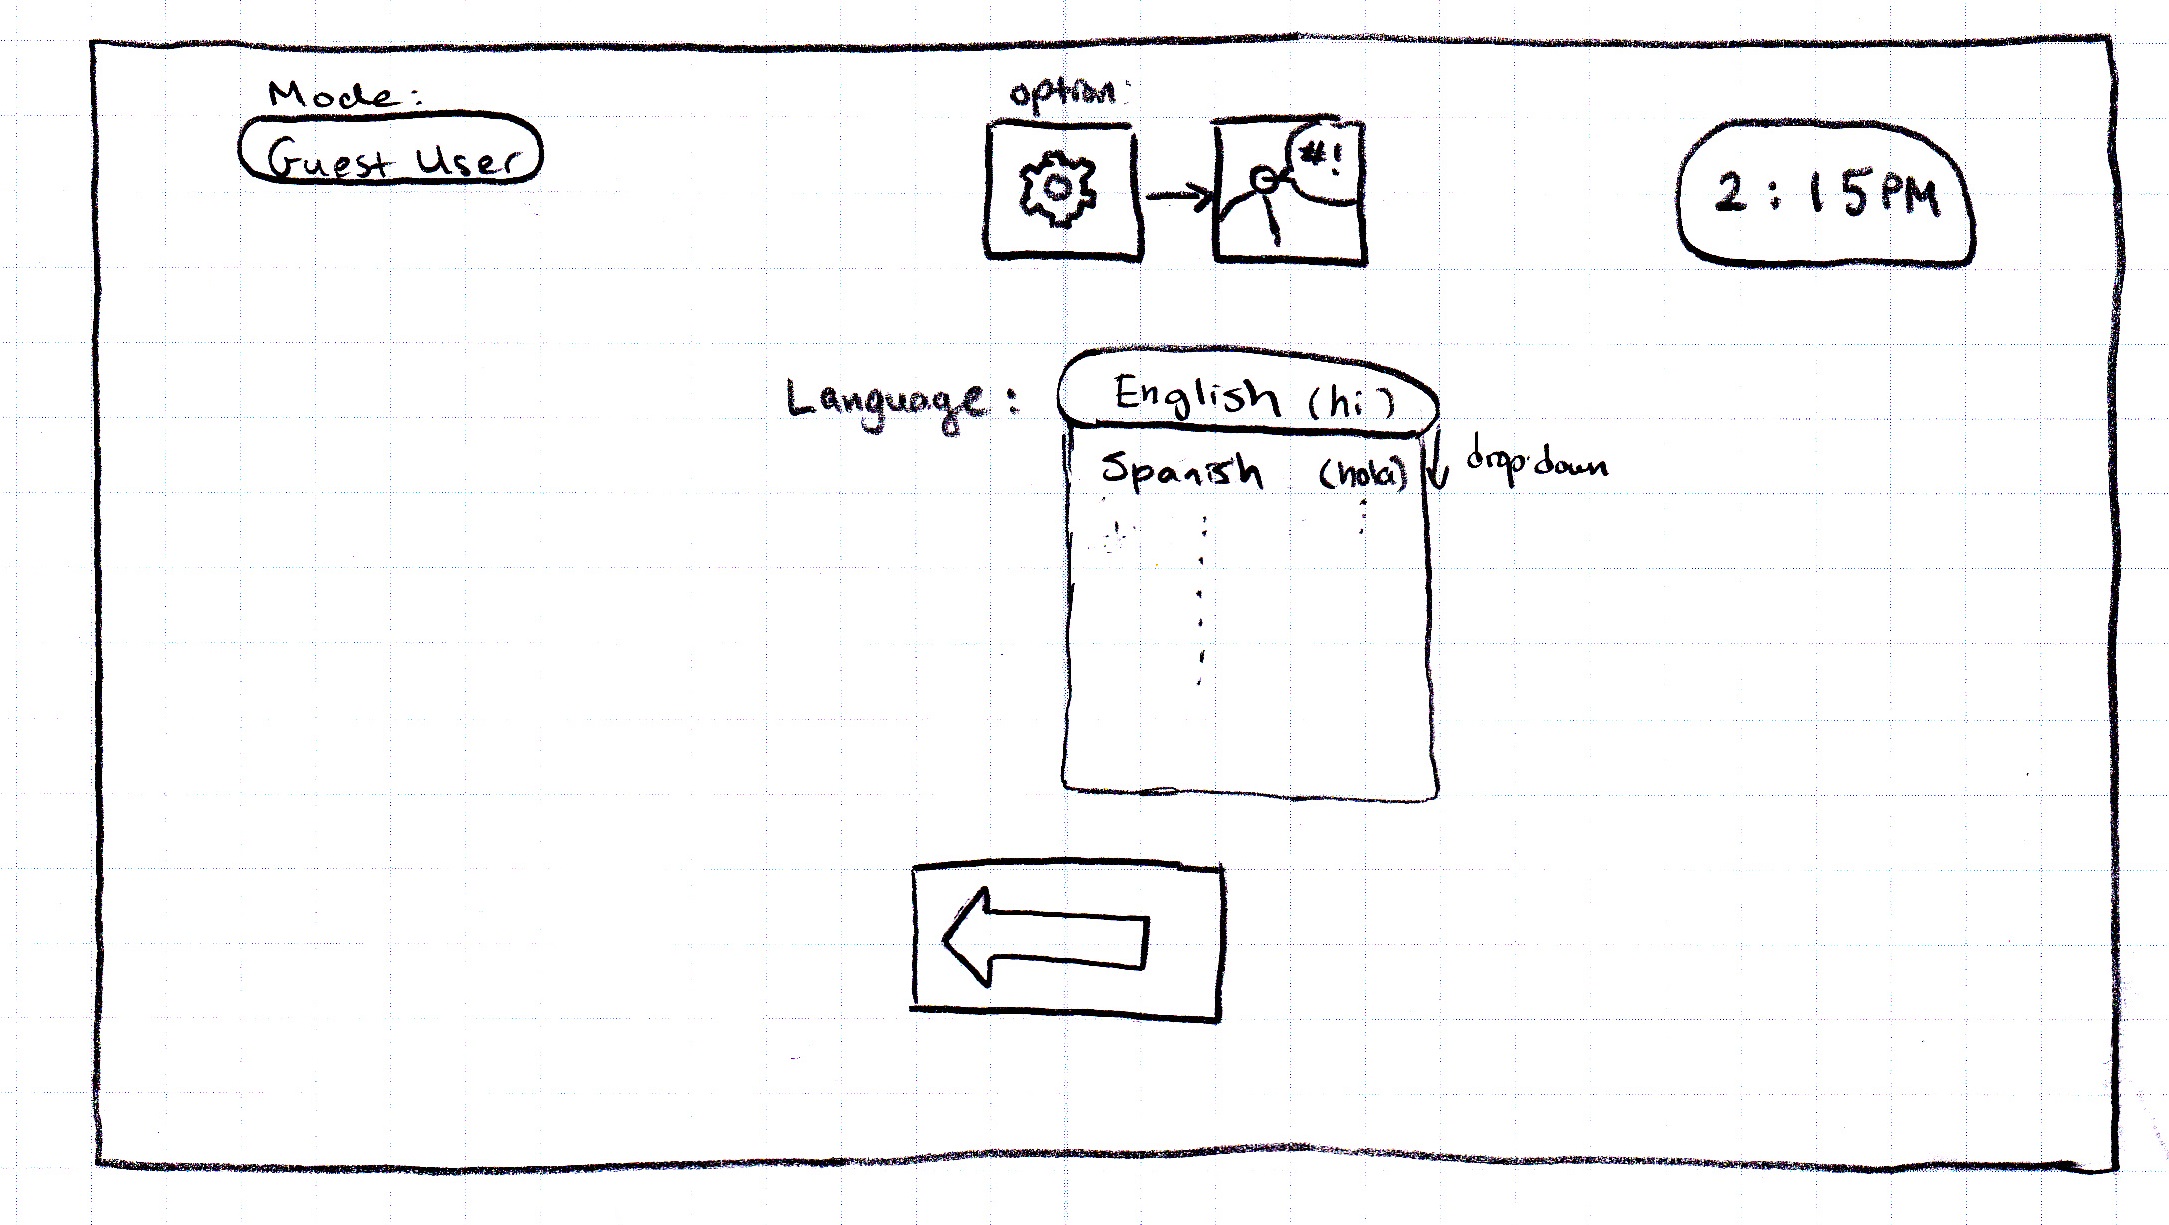 Mode:
Guest User
option:
#!
2:15PM
Language:
English (hi)
Spanish (hola)
dropdown